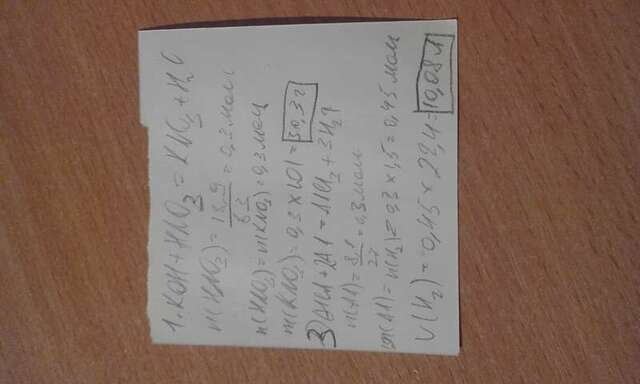 1. KOH + HNO3 = KNO3 + H2O
n(HNO3) = 18,9/63 = 0,3 моль
n(HNO3) = n(KNO3) = 0,3 моль
m(KNO3) = 0,3 × 101 = 30,3 г
3) + 2Al = + 3H2↑
n(Al) = 8,1/27 = 0,3 моль
n(Al) = n(H2) = 0,3 × 1,5 = 0,45 моль
V(H2) = 0,45 × 22,4 = 10,08 л